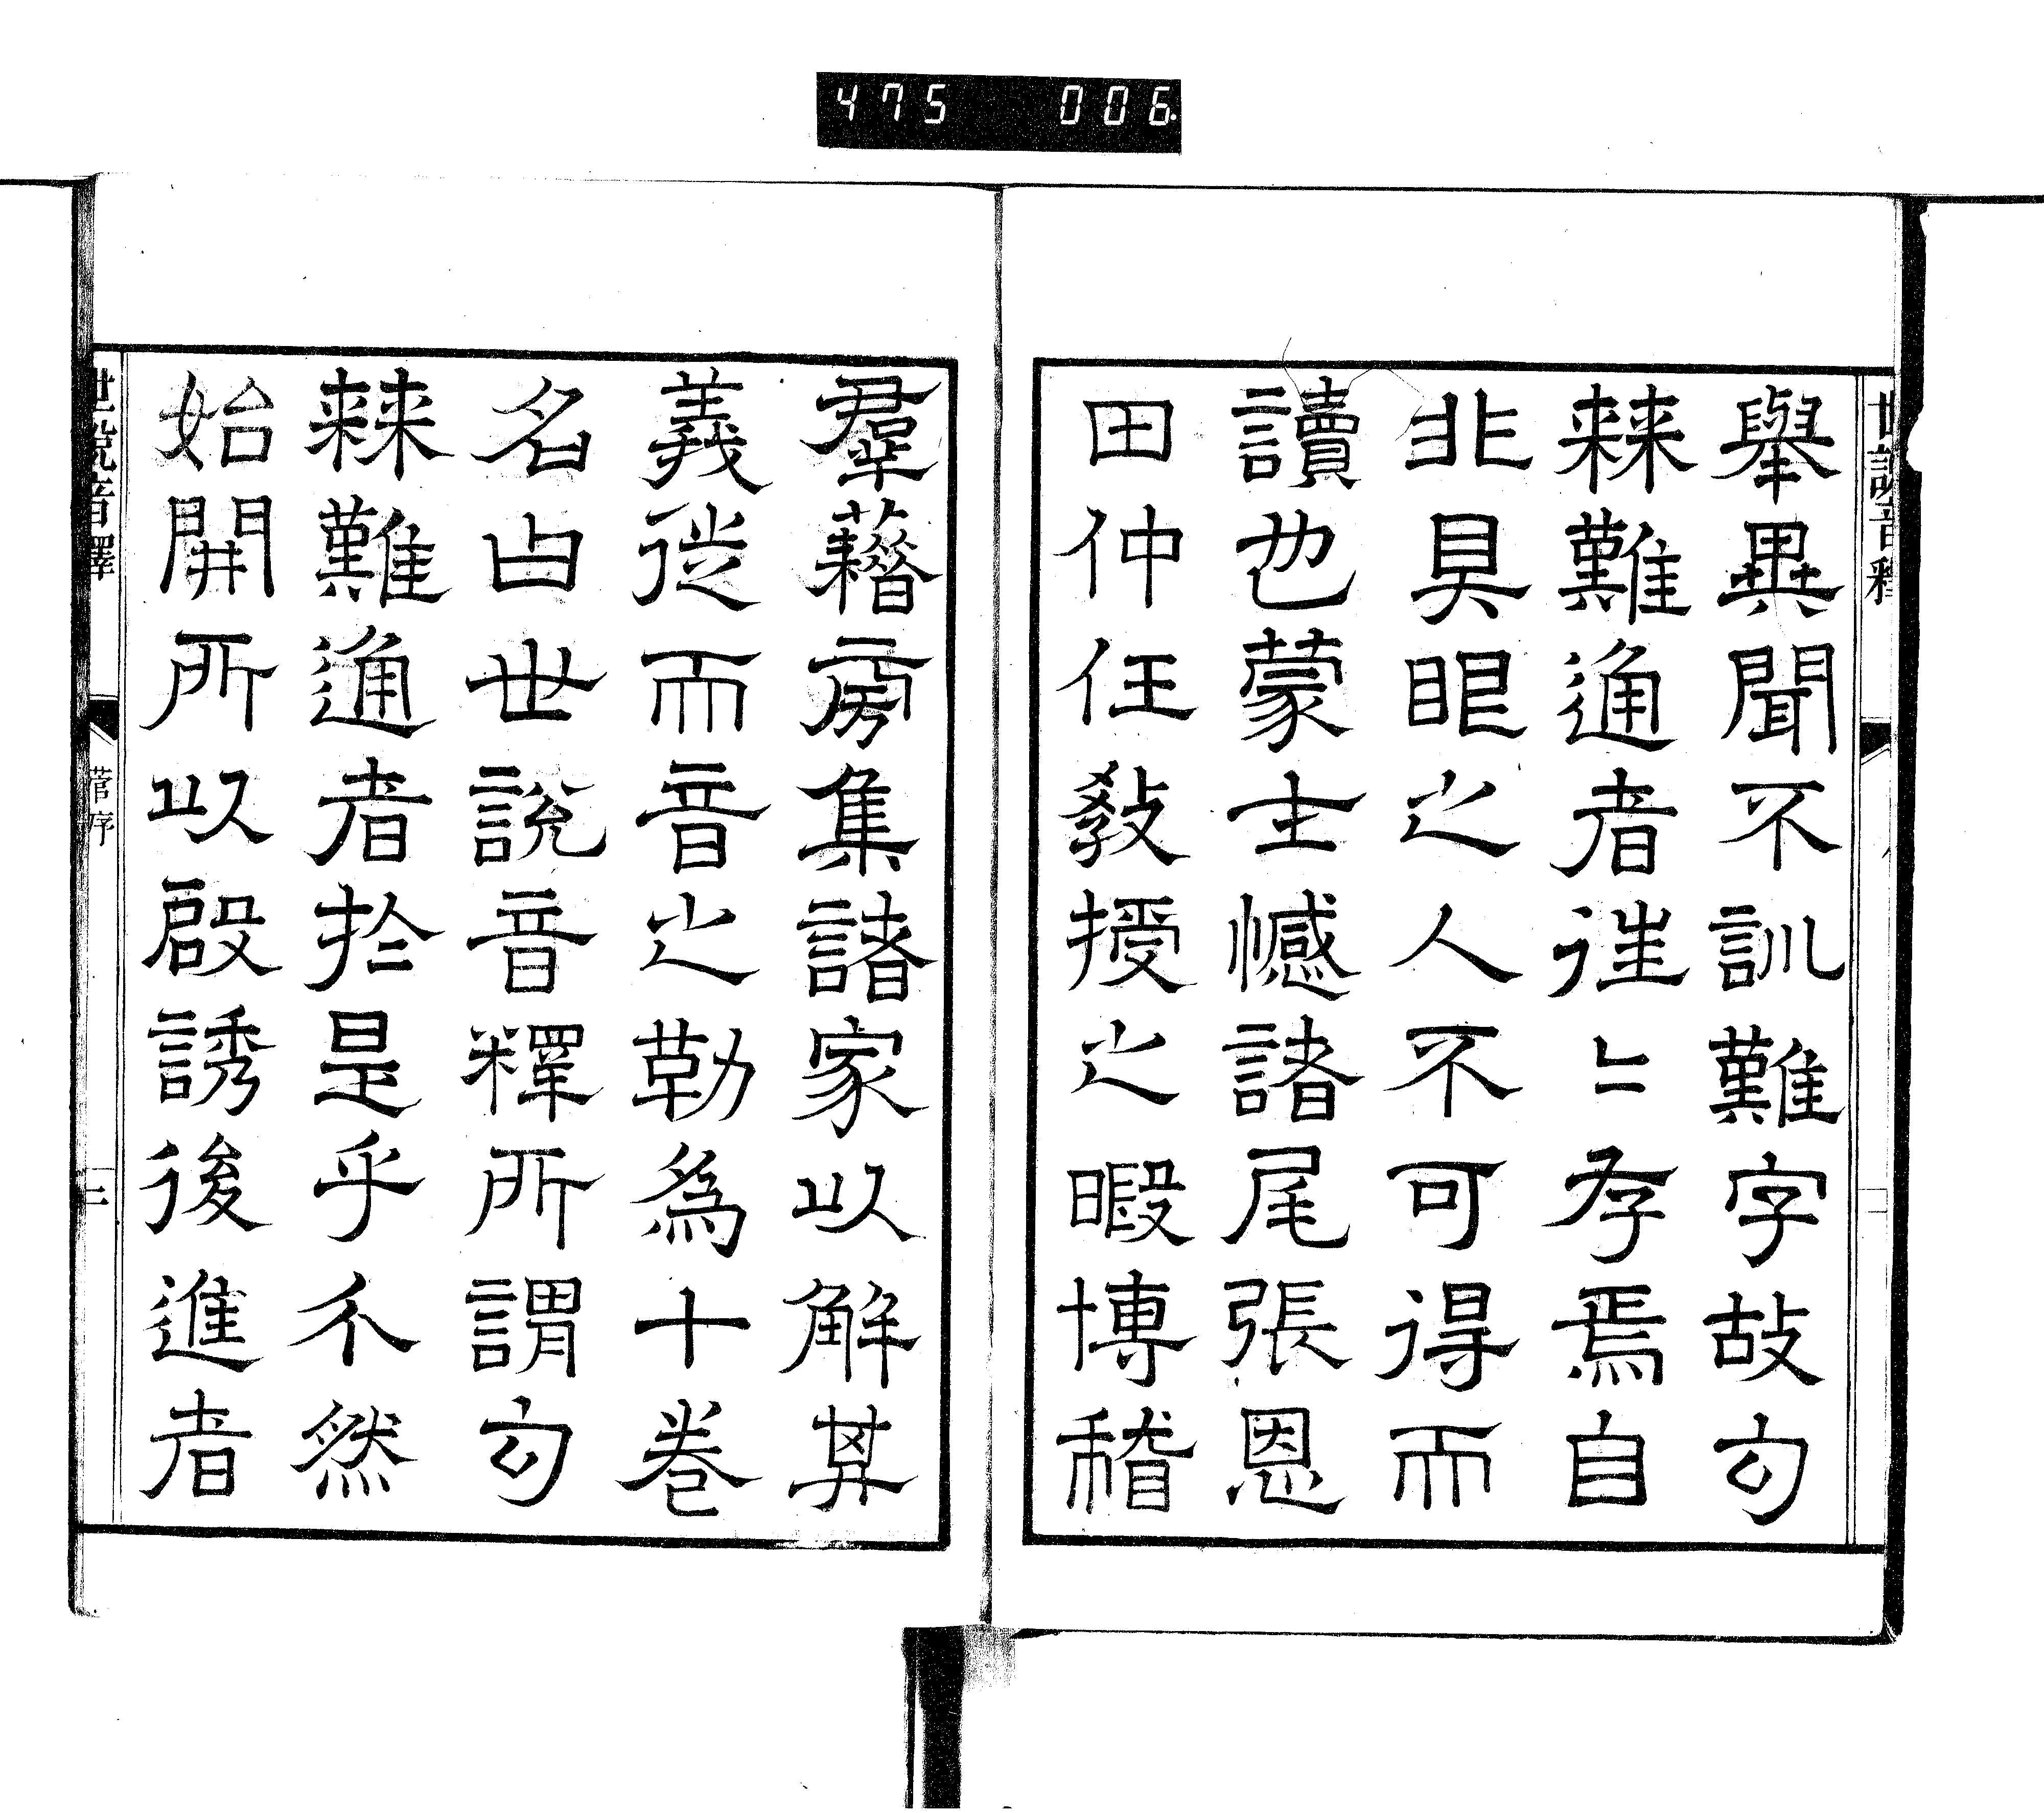 475 006
舉異聞不訓難字故句
棘難通者徃々存焉自
非具眼之人不可得而
讀也蒙士憾諸尾張恩
田仲任教授之暇博稽
羣籍旁集諸家以解其
義從而音之勒爲十卷
名曰世說音釋所謂句
棘難通者於是乎尒然
始開所以啟誘後進者
世說音釋
菅序
二